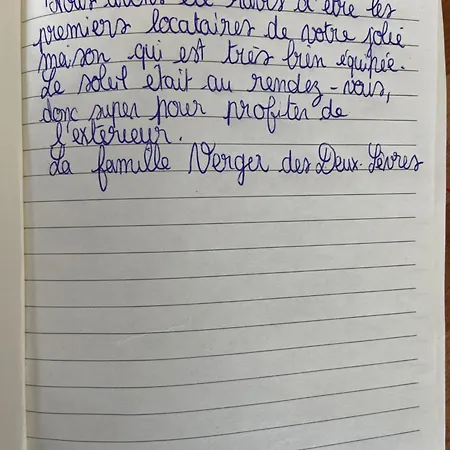 Nous avons été ravis d'être les
premiers locataires de votre jolie
maison qui est très bien équipée.
Le soleil était au rendez-vous,
donc super pour profiter de
l'extérieur.
La famille Verger des Deux-Sèvres